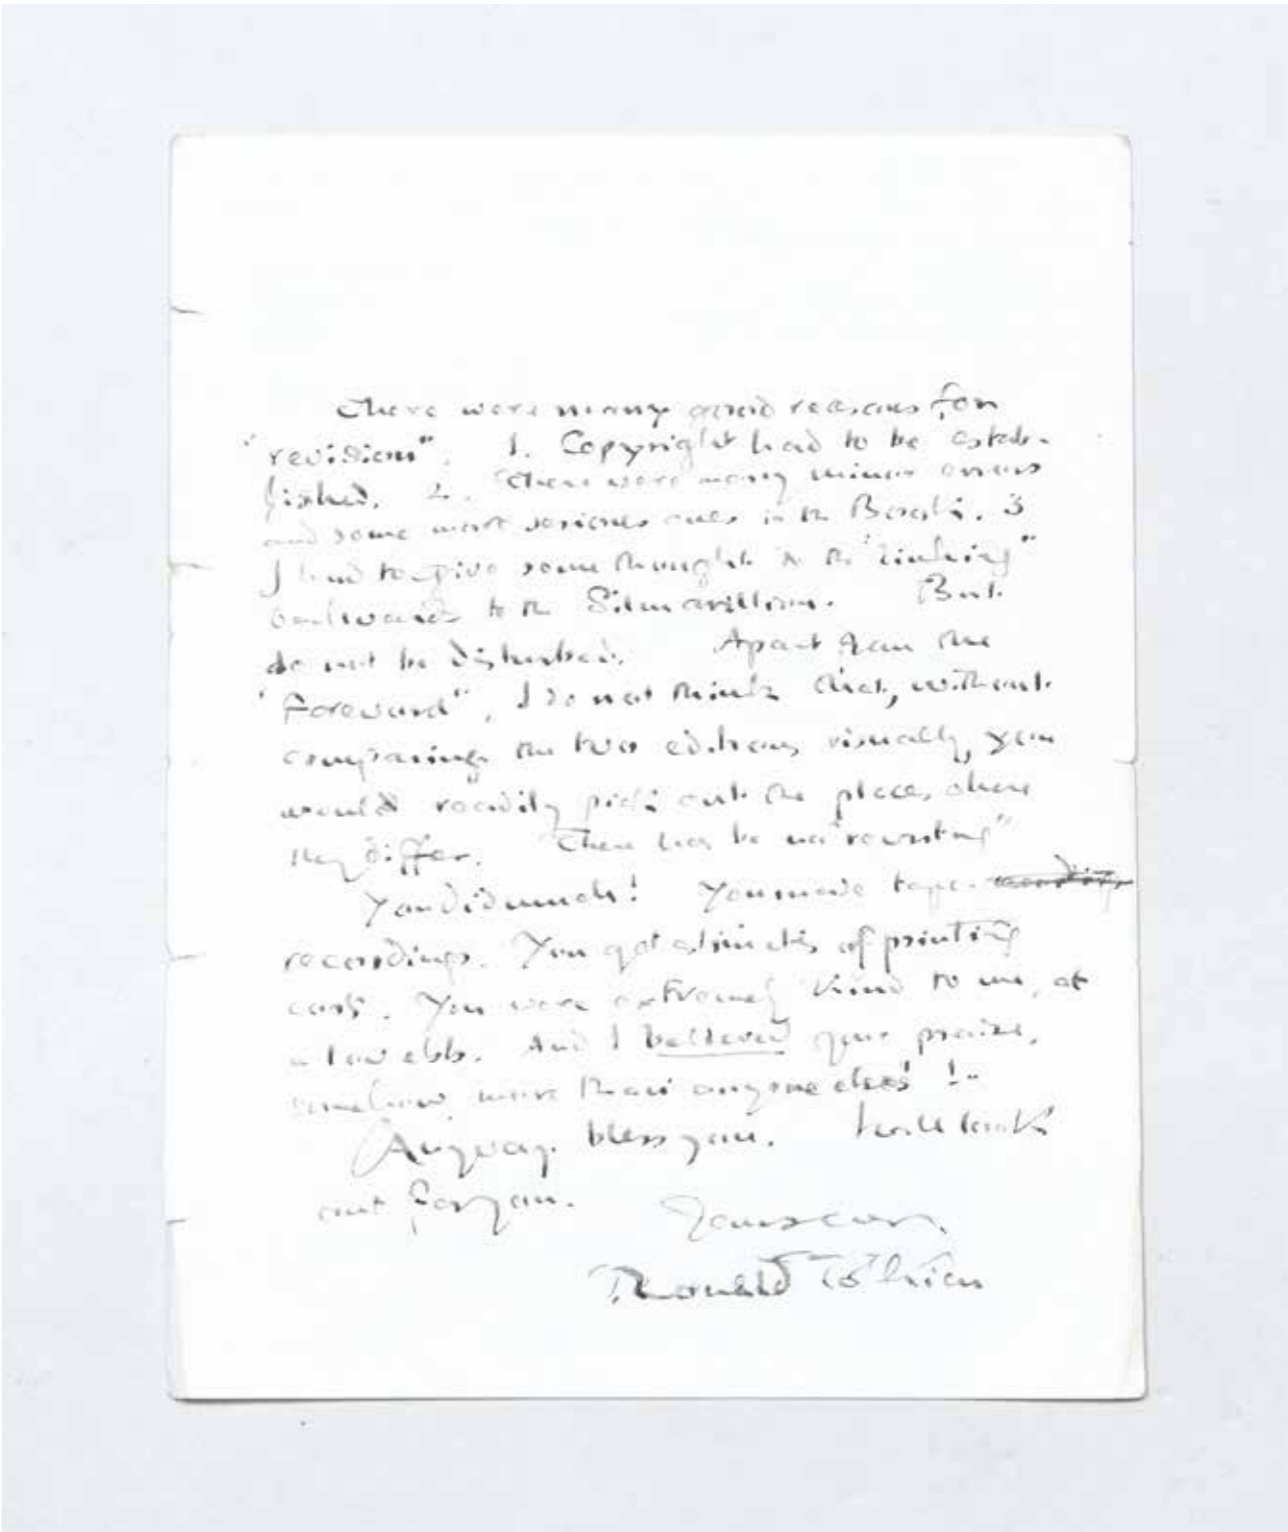 There were many good reasons for
"revision". 1. Copyright had to be estab-
lished. 2. There were many minor errors
and some most serious ones in the Books. 3
I had to give some thought to the "linking"
backwards to the Silmarillion. But
do not be disturbed. Apart from the
"Foreward", I do not think that, without
comparing the two editions visually, you
would readily pick out the places where
they differ. There has be no "rewriting"
You did much! You made tape-
recordings. You got estimates of printing
costs. You were extremely kind to me, at
a low ebb. And I believed your praise,
somehow more than anyone elses' !
Anyway. bless you. I will look
out for you.
Yours ever.
Ronald Tolkien